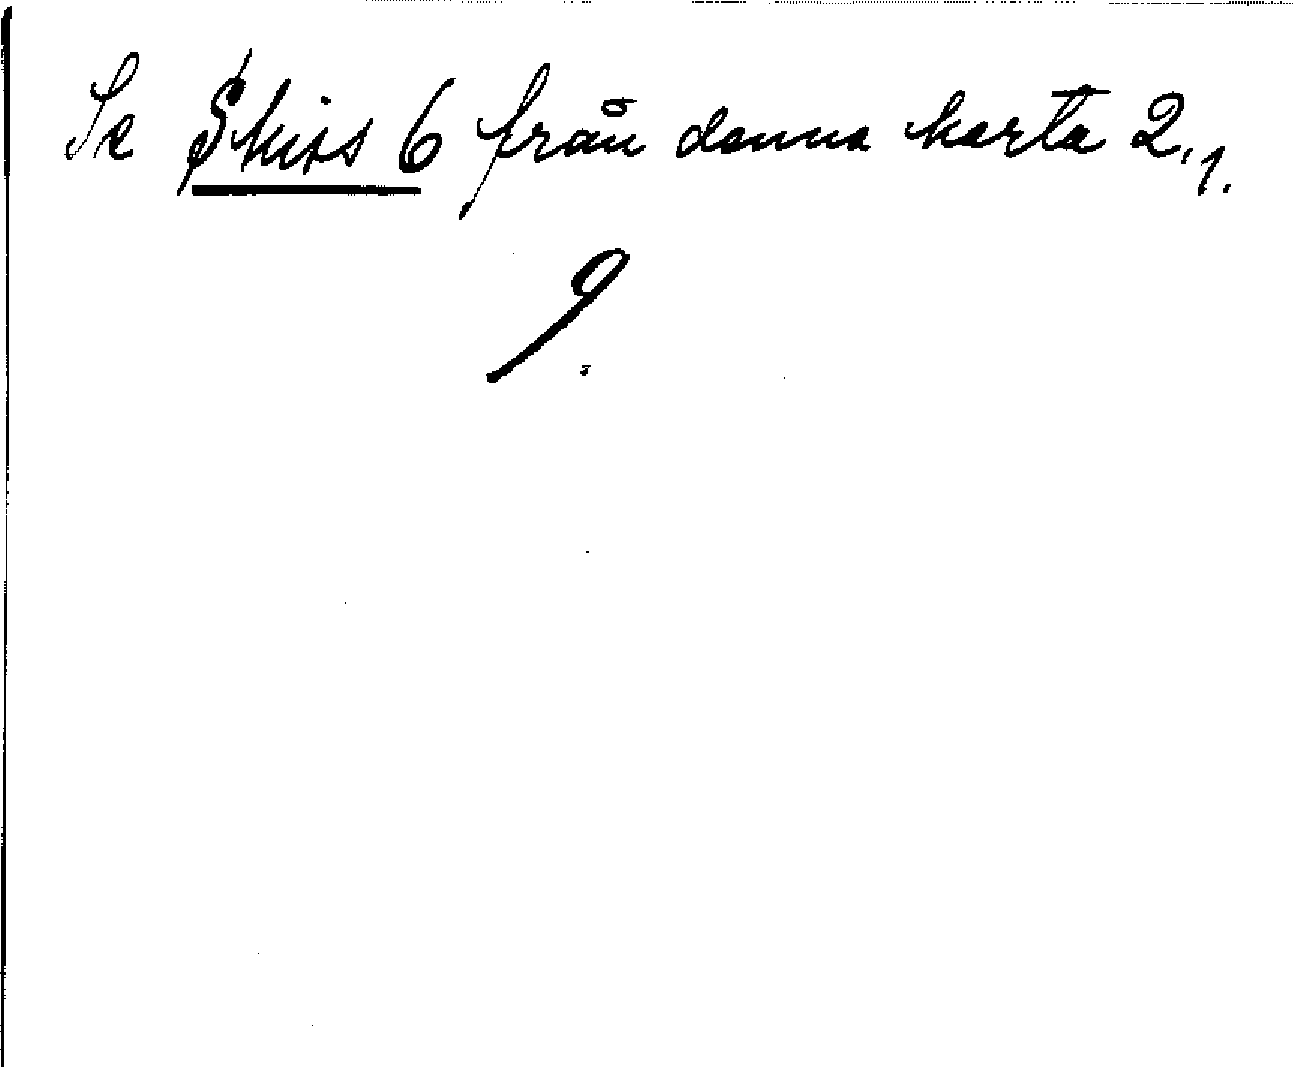 Se Skiss 6 från denna karta 2.1.
9.